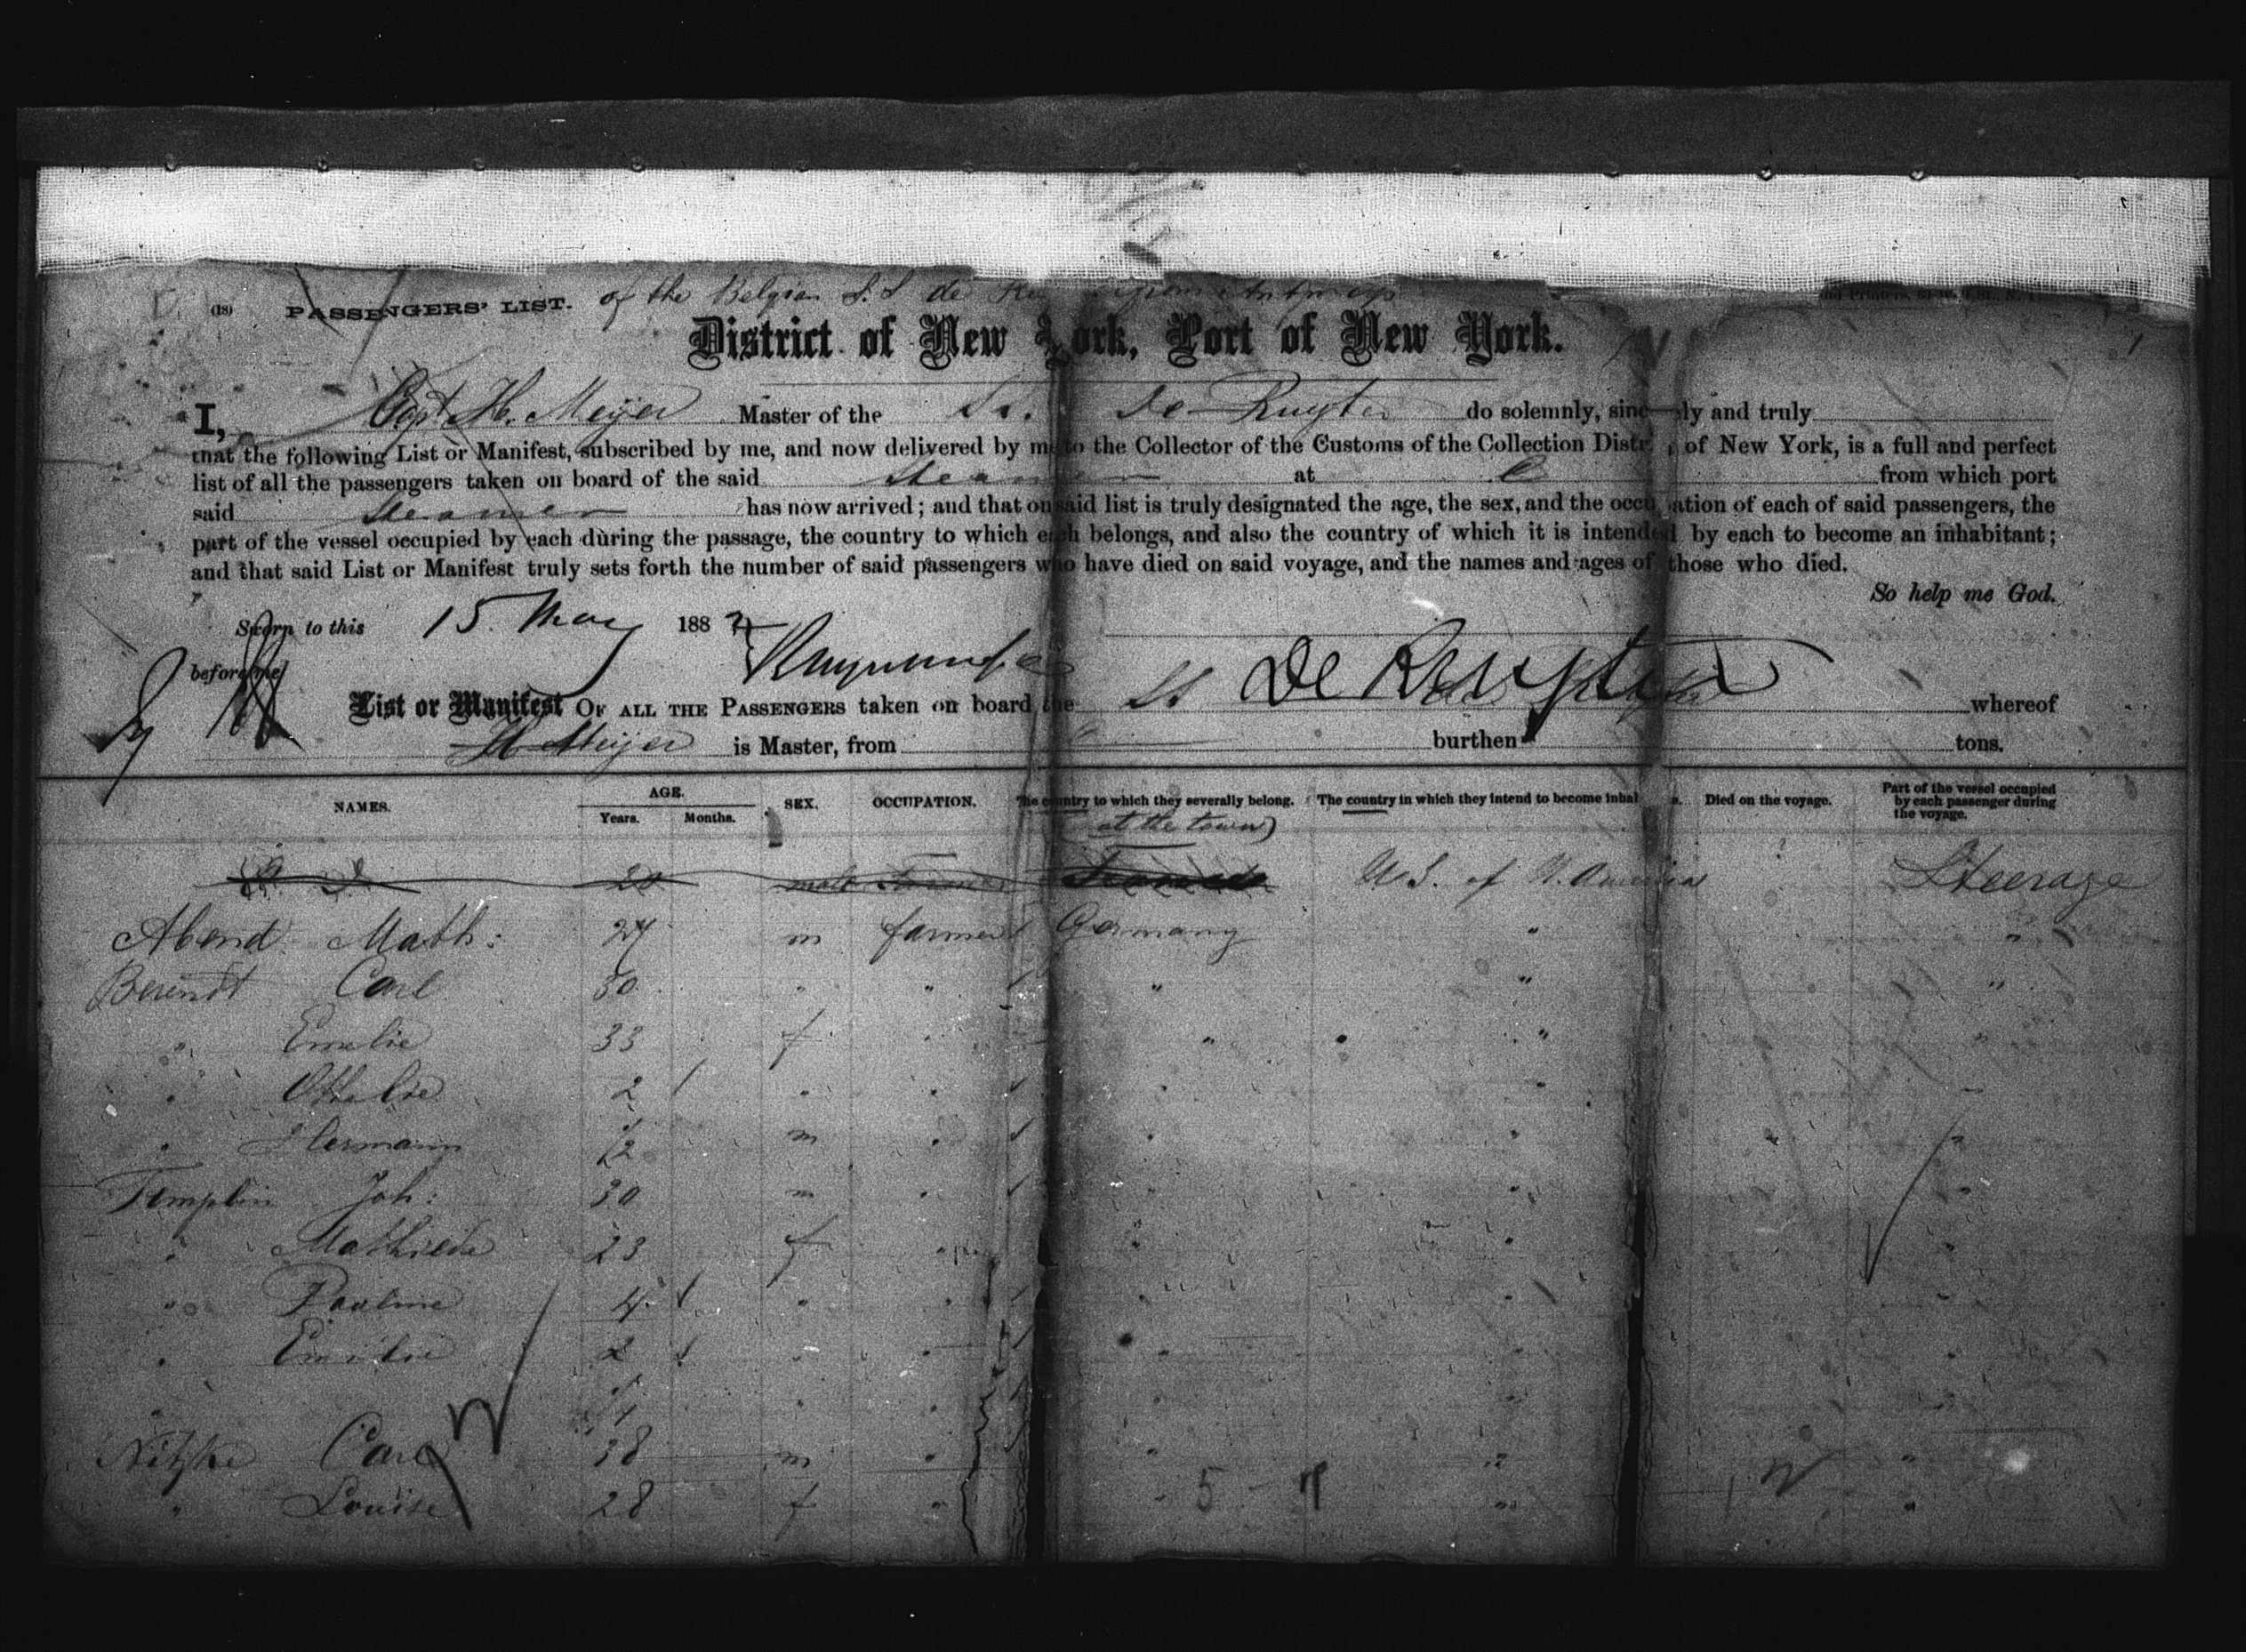 (18) PASSENGERS' LIST. of the Belgian S.S. de
District of New York, Port of New York.
I, Capt. H. Meijer Master of the Ss. De Ruyter do solemnly, sincerely and truly
that the following List or Manifest, subscribed by me, and now delivered by me to the Collector of the Customs of the Collection District of New York, is a full and perfect
list of all the passengers taken on board of the said Steamer at from which port
said Steamer has now arrived; and that on said list is truly designated the age, the sex, and the occupation of each of said passengers, the
part of the vessel occupied by each during the passage, the country to which each belongs, and also the country of which it is intended by each to become an inhabitant;
and that said List or Manifest truly sets forth the number of said passengers who have died on said voyage, and the names and ages of those who died.
So help me God.
Sworn to this 15. May 188
before me
List or Manifest OF ALL THE PASSENGERS taken on board the SS De Ruyter whereof
H Meijer is Master, from burthen tons.
NAMES. AGE. Years. Months. SEX. OCCUPATION. The country to which they severally belong. The country in which they intend to become Died on the voyage. Part of the vessel occupied by each passenger during the voyage.
at the town)
20 male U.S. of N. America Steerage
Abend Math: 27 m farmer Germany " "
Berendt Carl 30 " " " " "
" Emelie 33 f " " " "
" Ottelie 2 " " " "
" Hermann m " " " "
Templin Joh: 30 m " " " "
" Mathilda 23 f " " " "
" Pauline 4 " " " " "
" Emilie 2 " " " " "
" " " "
Nitzke Carl 38 m " " " "
" Louise 28 f " " 5 " "